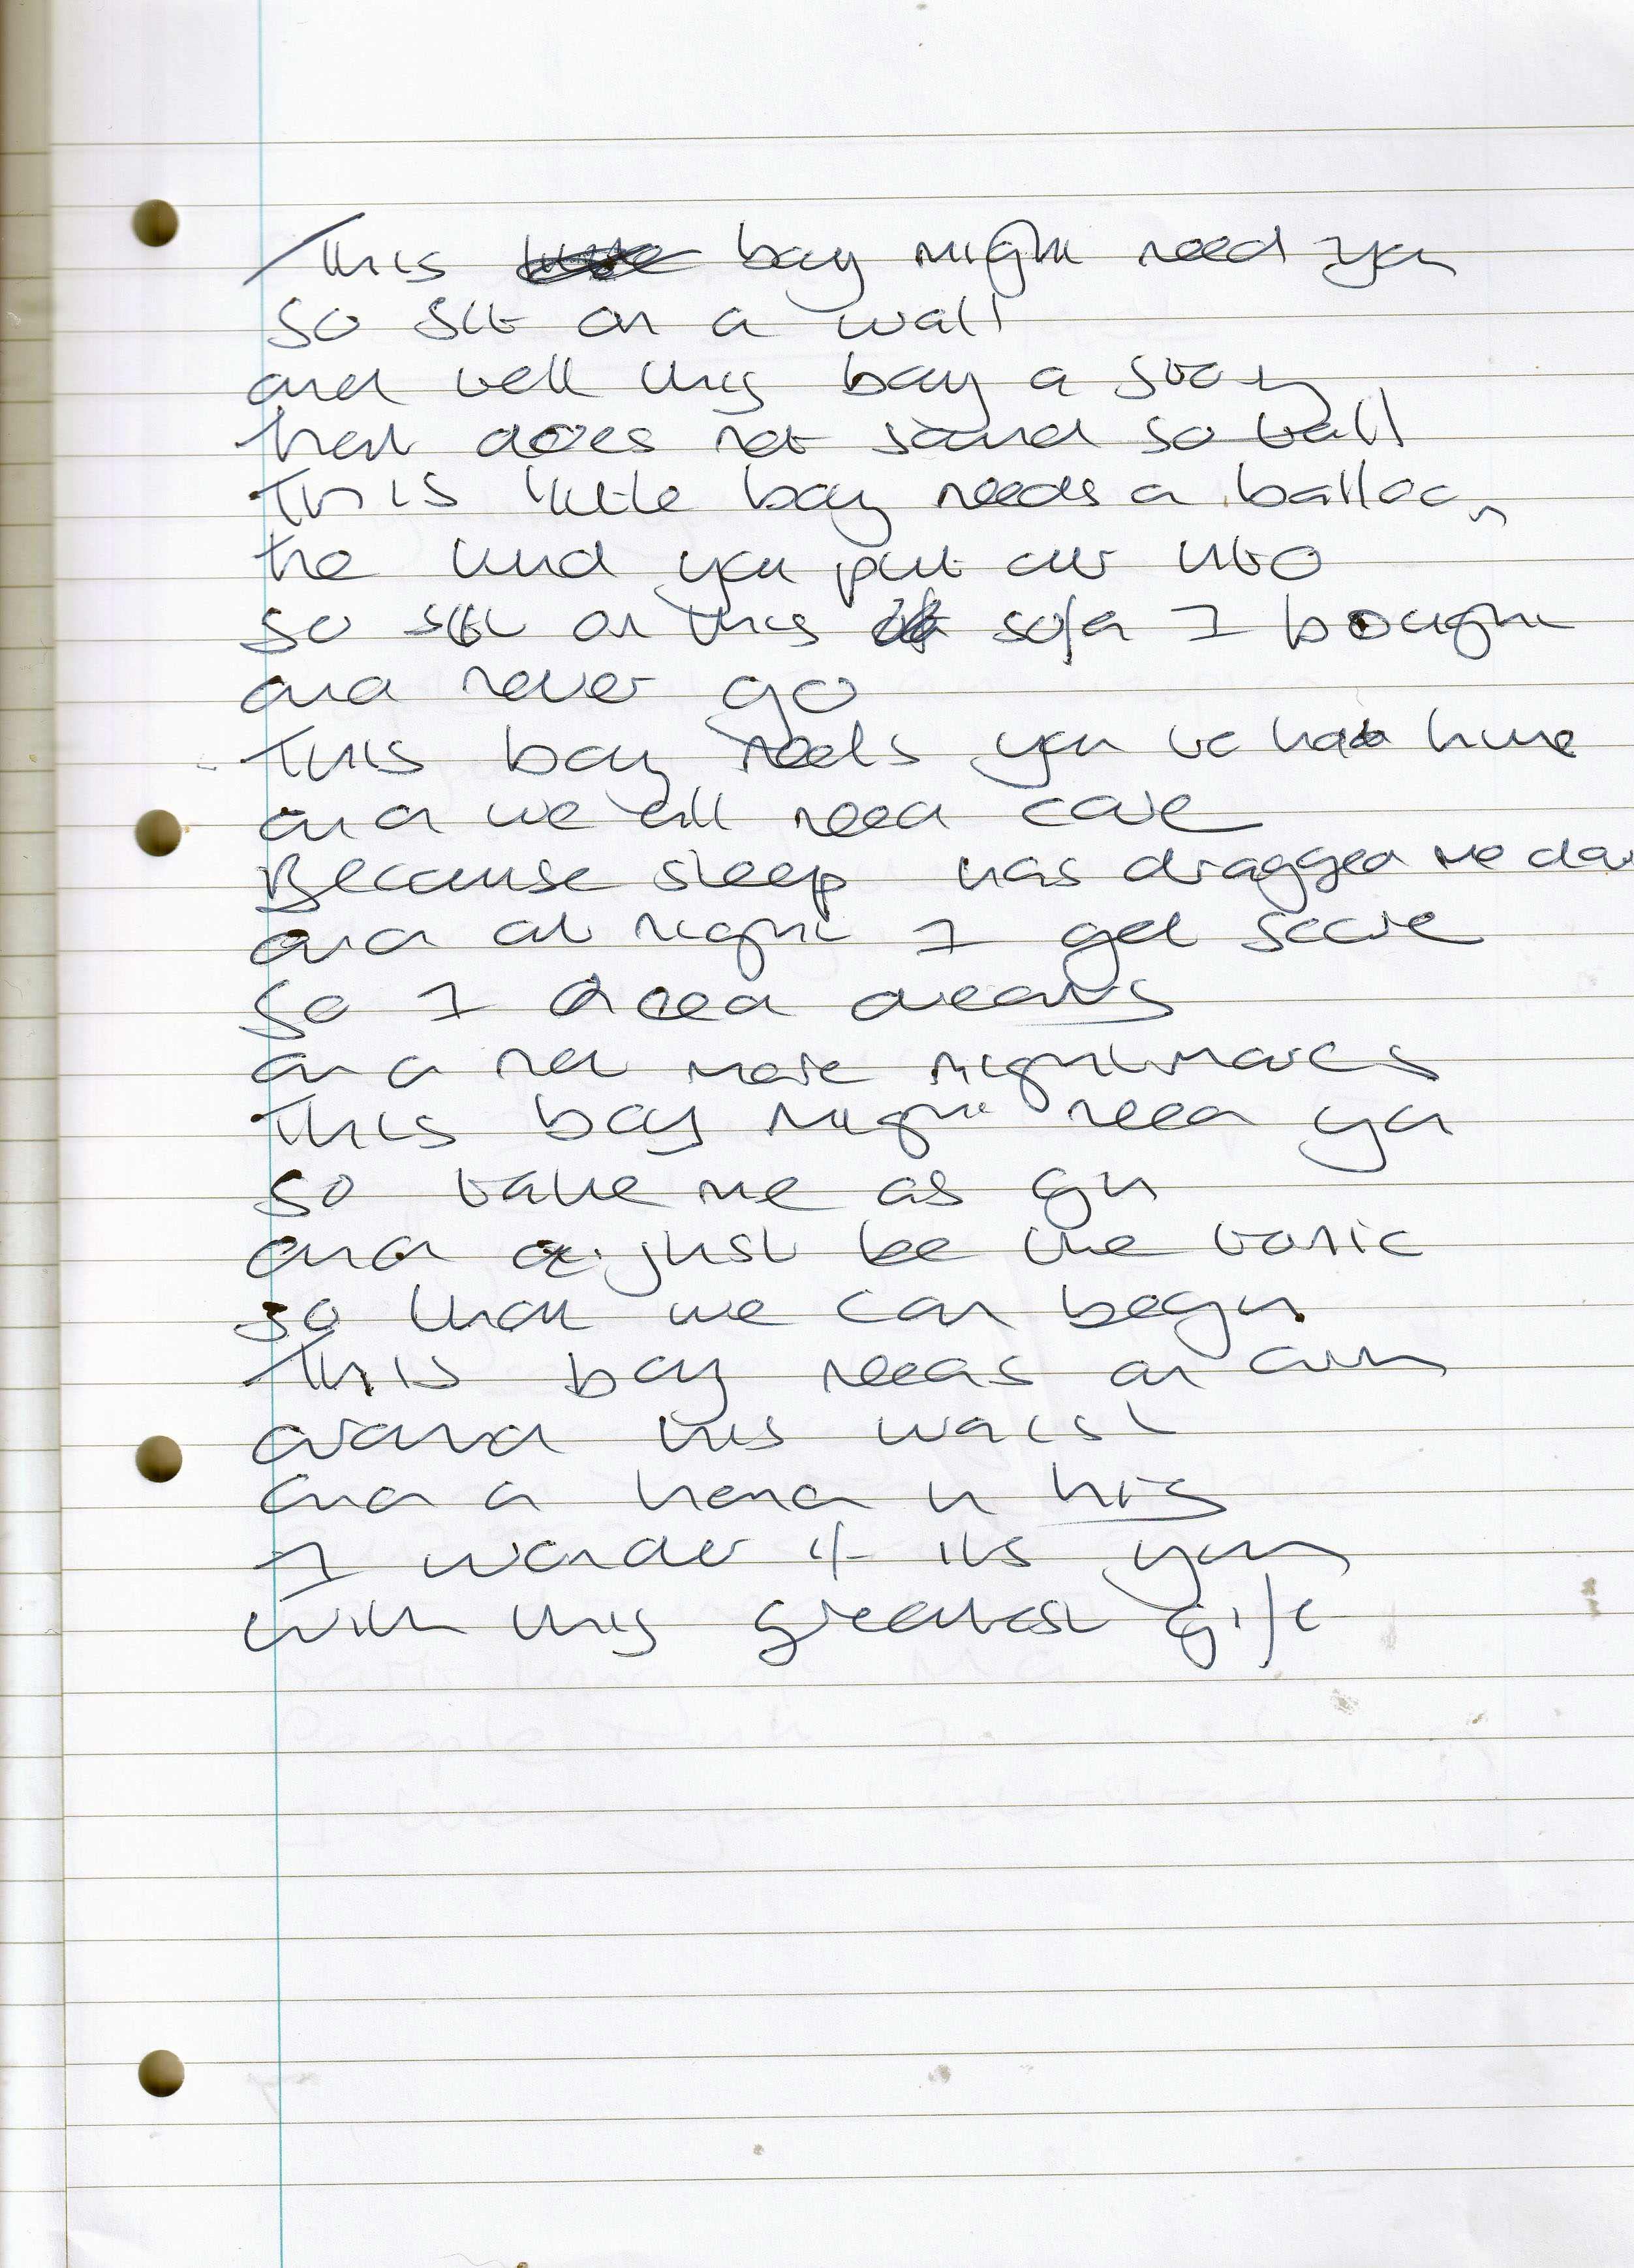 This boy might need you
so sit on a wall
and tell this boy a story
that does not sound so tall
This little boy needs a balloon
the kind you put air into
so sit on this sofa I bought
and never go
This boy needs you to hold
and we all need care
Because sleep has dragged me
and at night I get scare
so I need dreams
and not more nightmares
This boy might need you
so take me as gin
and just be the tonic
so that we can begin
This boy needs an arm
around his waist
and a hand in his
I wonder if its you
with this greatest gift